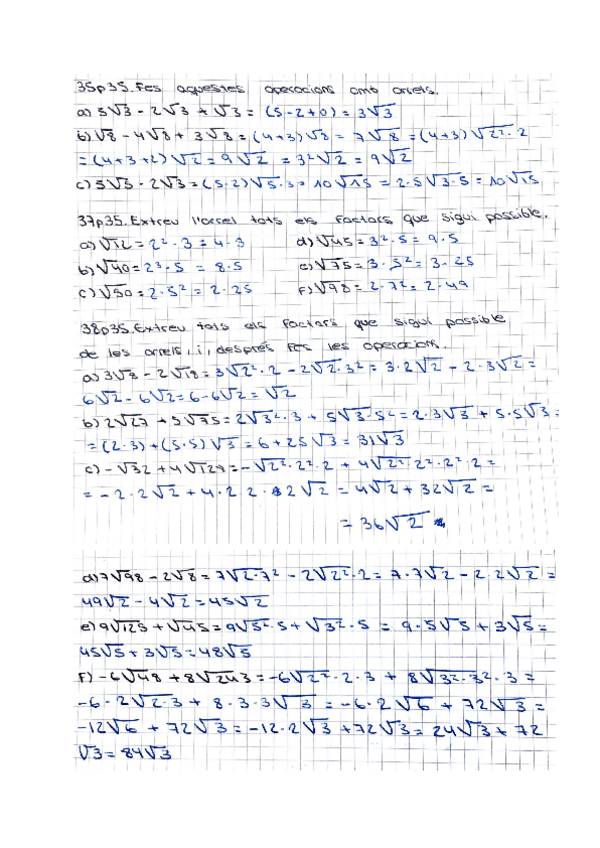 35p35. Fes aquestes operacions amb arrels.
a) 5√3 - 2√3 + √3 = (5-2+0) = 3√3
b) √8 - 4√8 + 3√8 = (4+3)√8 = 7√8 = (4+3)√2²·2
= (4+3+2)√2 = 9√2 = 3²√2 = 9√2
c) 5√3 · 2√3 = (5·2)√5·3 = 10√15 = 2·5√3·5 = 10√15
37p35. Extreu l'arrel tots els factors que sigui possible.
a) √12 = 2²·3 = 4·3 d) √45 = 3²·5 = 9·5
b) √40 = 2³·5 = 8·5 e) √75 = 3·5² = 3·25
c) √50 = 2·5² = 2·25 f) √98 = 2·7² = 2·49
38p35. Extreu tots els factors que sigui possible
de les arrels, i, després fes les operacions.
a) 3√8 - 2√18 = 3√2²·2 - 2√2·3² = 3·2√2 - 2·3√2 =
6√2 - 6√2 = 6-6√2 = √2
b) 2√27 + 5√75 = 2√3²·3 + 5√3·5² = 2·3√3 + 5·5√3 =
= (2·3)+(5·5)√3 = 6+25√3 = 31√3
c) -√32 + 4√127 = -√2²·2²·2 + 4√2²·2²·2²·2 =
= -2·2√2 + 4·2·2·2√2 = 4√2 + 32√2 =
= 36√2
d) 7√98 - 2√8 = 7√2·7² - 2√2²·2 = 7·7√2 - 2·2√2 =
49√2 - 4√2 = 45√2
e) 9√125 + √45 = 9√5²·5 + √3²·5 = 9·5√5 + 3√5 =
45√5 + 3√5 = 48√5
F) -6√48 + 8√243 = -6√2²·2·3 + 8√3²·3²·3 =
-6·2√2·3 + 8·3·3√3 = -6·2√6 + 72√3 =
-12√6 + 72√3 = -12·2√3 + 72√3 = 24√3 + 72
√3 = 84√3